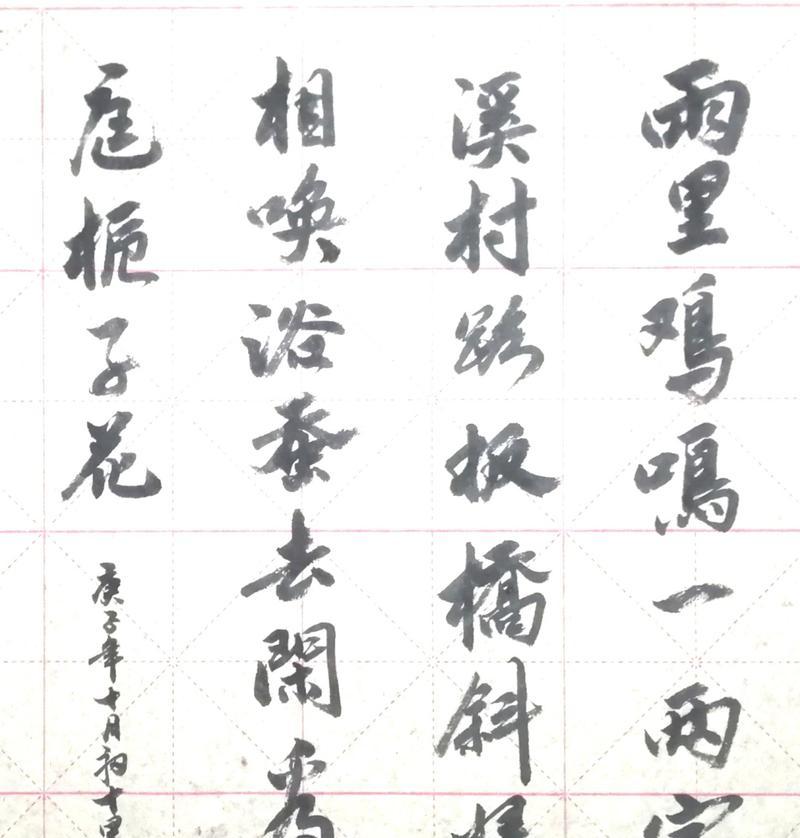 雨里鸡鳴一两
溪村路板橋斜
相唤浴蚕去閑看
庭栀子花
庚子年十月初十